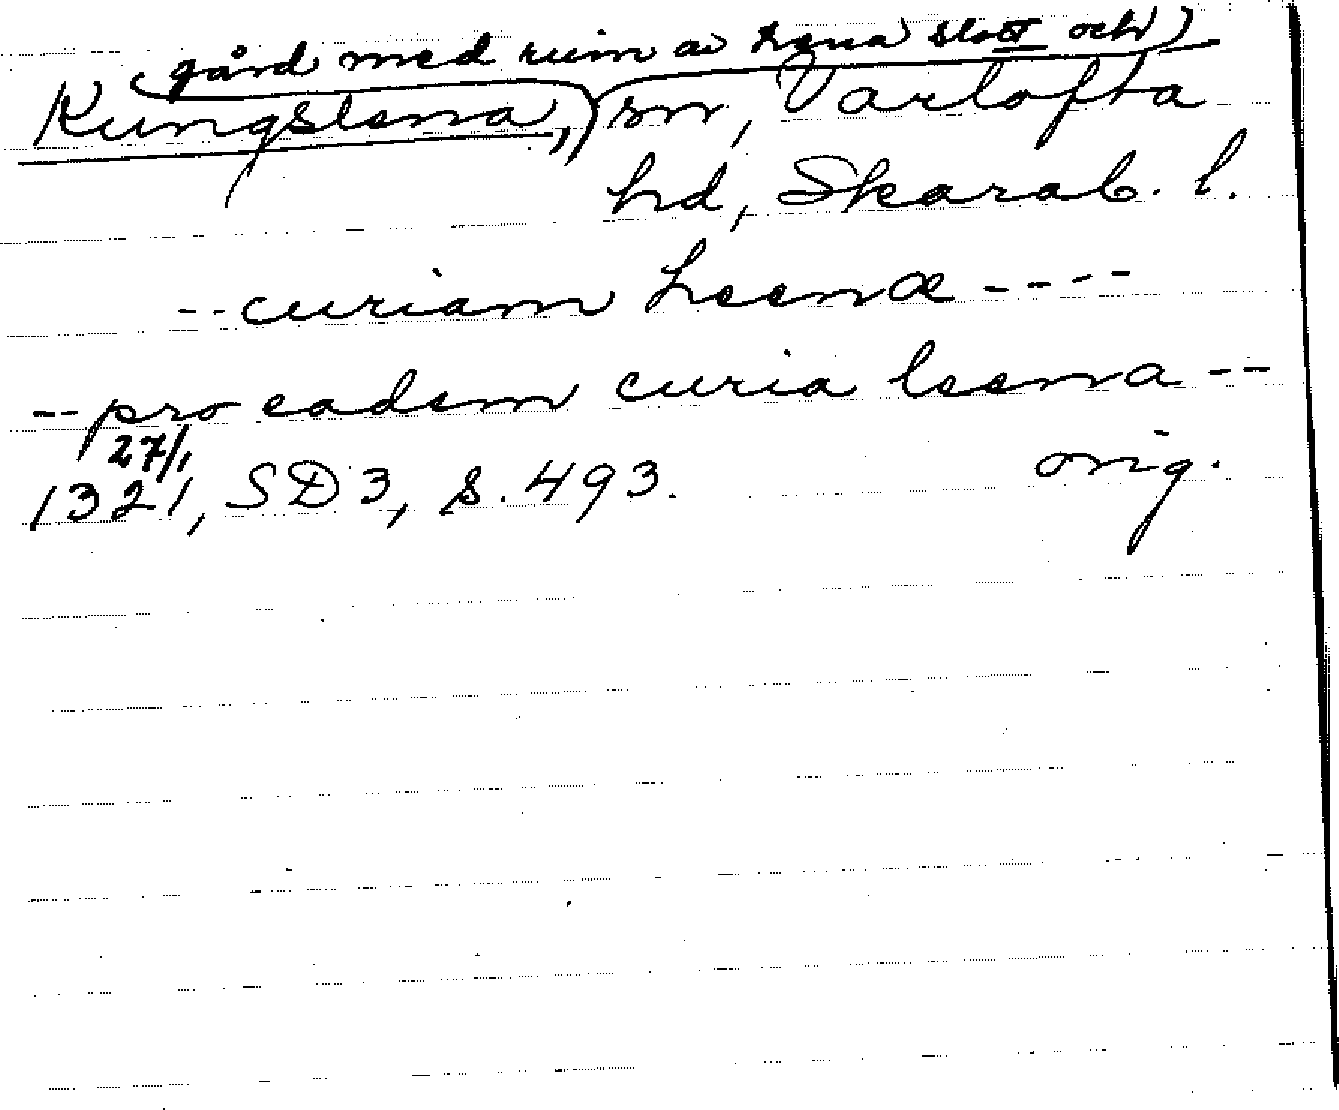 (gård med ruin av Lena slott och)
Kungslena, sn, Vartofta
hd, Skarab. l.
-- curiam Leenæ ----
-- pro eadem curia leena --
27/1
1321, SD3, s. 493. orig.